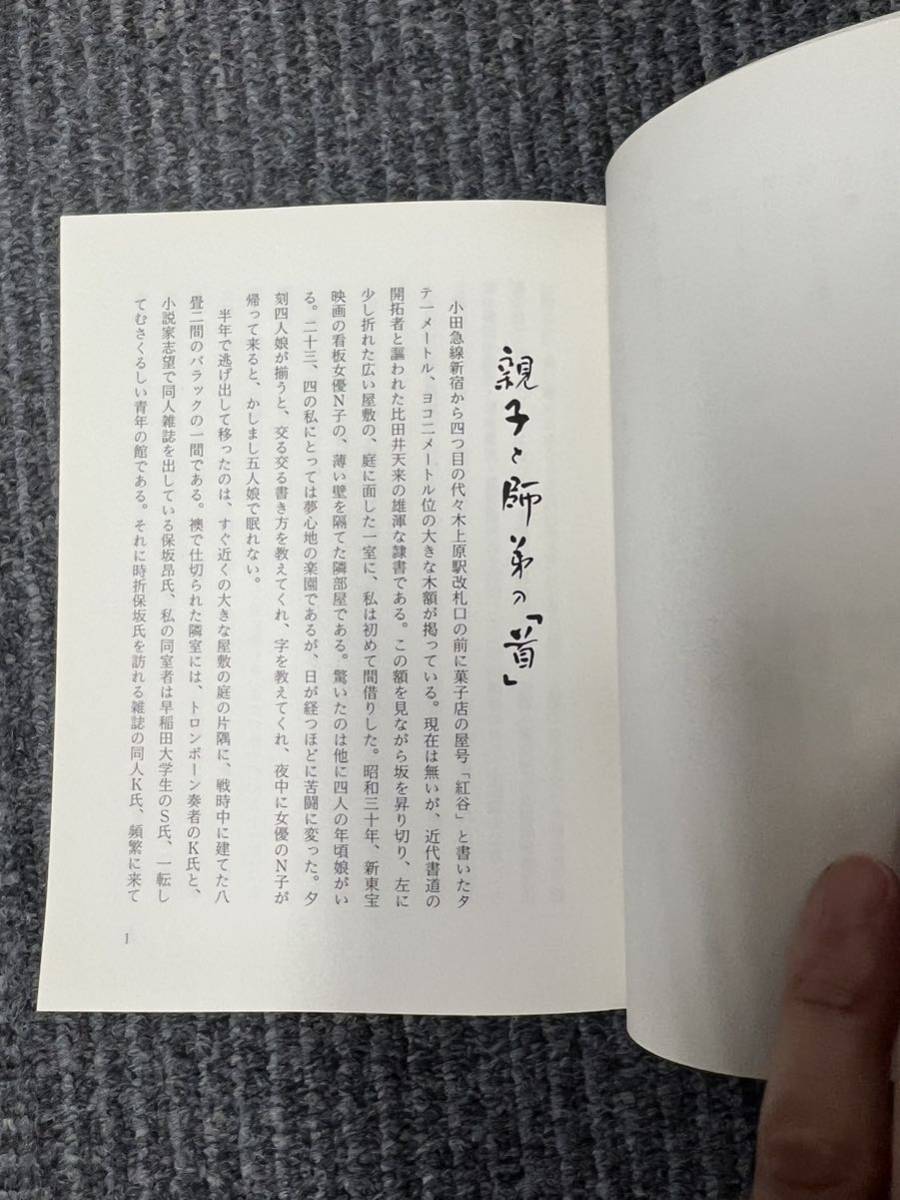 親子と師弟の「首」
小田急線新宿から四つ目の代々木上原駅改札口の前に菓子店の屋号「紅谷」と書いたタ
テ一メートル、ヨコ二メートル位の大きな木額が掲っている。現在は無いが、近代書道の
開拓者と謳われた比田井天来の雄渾な隷書である。この額を見ながら坂を昇り切り、左に
少し折れた広い屋敷の、庭に面した一室に、私は初めて間借りした。昭和三十年、新東宝
映画の看板女優N子の、薄い壁を隔てた隣部屋である。驚いたのは他に四人の年頃娘がい
る。二十三、四の私にとっては夢心地の楽園であるが、日が経つほどに苦闘に変った。夕
刻四人娘が揃うと、交る交る書き方を教えてくれ、字を教えてくれ、夜中に女優のN子が
帰って来ると、かしまし五人娘で眠れない。
半年で逃げ出して移ったのは、すぐ近くの大きな屋敷の庭の片隅に、戦時中に建てた八
畳二間のバラックの一間である。襖で仕切られた隣室には、トロンボーン奏者のK氏と、
小説家志望で同人雑誌を出している保坂昂氏、私の同室者は早稲田大学生のS氏、一転し
てむさくるしい青年の館である。それに時折保坂氏を訪れる雑誌の同人K氏、頻繁に来て
1